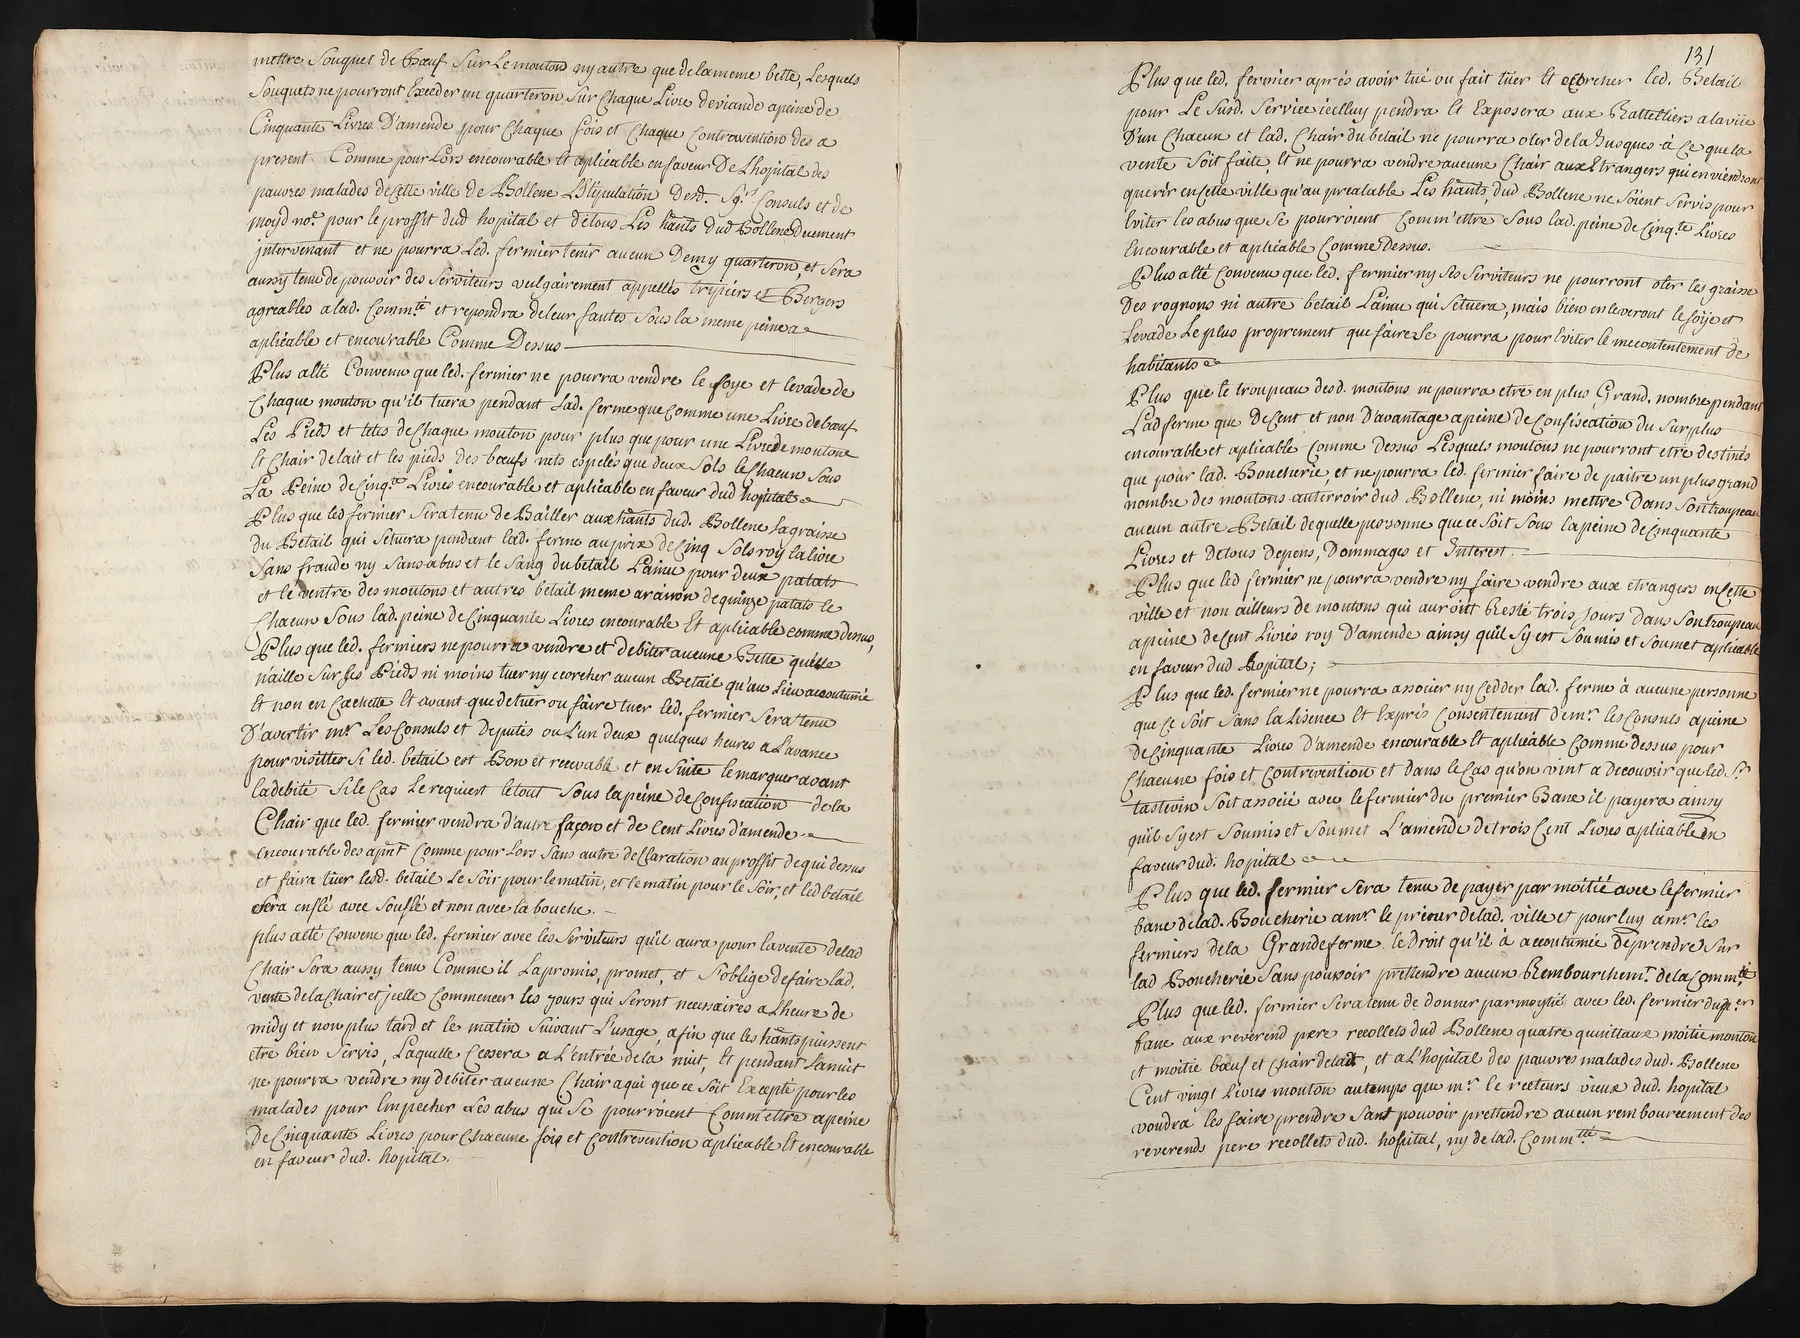 mettre Souquet de Bœuf Sur Le mouton ny autre que de la meme bette, Lesquels
Souquets ne pourront Exceder un quarteron Sur Chaque Livre de viande a peine de
Cinquante Livres D'amende pour Chaque fois et Chaque Contravention des a
present Comme pour Lors encourable Et aplicable en faveur De L'hopital des
pauvres malades de Cette ville de Bollene Stipulation Desd. Srs Consuls et de
moyd nore pour le proffit dud hopital et de tous Les hants dud Bollene Duement
intervenant et ne pourra Led. fermier tenir aucun Demy quarteron, et Sera
aussy tenu de pouvoir des Serviteurs vulgairement appellés tripiers et Bergers
agreables a lad. Commté et repondra de leur fautes Sous La meme peine
apliéable et encourable Comme Dessus
Plus a êté Convenu que led. fermier ne pourra vendre le foye et levade de
Chaque mouton qu'il tuera pendant Lad. ferme que comme une Livre de bœuf
Les Pieds et tetes de Chaque mouton pour plus que pour une Livre de moutone
Et Chair de lait et les pieds des bœufs nets et pelés que deux Sols le Chacun Sous
La Peine de Cinqte Livres encourable et aplicable en faveur dud hopital
Plus que led fermier Sera tenu de Bailler aux hants dud. Bollene La graisse
Du Betail qui Se tuera pendant lad. ferme au prix de Cinq Sols roy la livre
Sans fraude ny Sans abus et le Sang du betail Lainu pour deux patats
et le ventre des moutons et autres betail meme a raison de quinze patats le
Chacun Sous lad. peine de Cinquante Livres encourable Et aplicable comme dessus,
Plus que led. fermiers ne pourra vendre et debiter aucune Bette qu'elle
n'aille Sur Ses Pieds ni moins tuer ny ecorcher aucun Betail qu'au Lieu accoutumé
Et non en Cachette Et avant que de tuer ou faire tuer led. fermier Sera tenu
D'avertir mrs Les Consuls et Deputés ou L'un deux quelques heures a L'avance
pour visitter Si led. betail est Bon et recevable et en Suite le marquer avant
la debite Si le Cas Le requiert le tout Sous la peine de Confiscation de la
Chair que led. fermier vendra d'autre façon et de Cent Livres d'amende
encourable des aprst Comme pour Lors Sans autre declaration au proffit de qui dessus
et faira tuer lesd. betail Le Soir pour le matin, et le matin pour le Soir, et led betail
Sera enflé avec Souflé et non avec la bouche.
plus a êté Convenu que led. fermier avec les Serviteurs qu'il aura pour la vente de lad
Chair Sera aussy tenu Comme il La promis, promet, et S'oblige de faire lad.
vente de la Chair et jcelle Commencer les jours qui Seront necessaires a L'heure de
midy et non plus tard et le matin Suivant L'usage, a fin que les hants puissent
etre bien Servis, Laquelle Cessera a L'entrée de la nuit, Et pendant La nuit
ne pourra vendre ny debiter aucune Chair a qui que ce Soit Excepté pour les
malades pour Empecher Les abus qui Se pourroient Commettre a peine
De Cinquante Livres pour Chacune fois et Contrevention aplicable Et encourable
en faveur dud. hopital.
131
Plus que led. fermier aprés avoir tué ou fait tüer Et ecorcher led. Betail
pour Le Susd. Service icelluy pendra Et Exposera aux Rattelliers a la vüe
D'un Chacun et lad. Chair du betail ne pourra oter de la Jusques à Ce que la
vente Soit faite, Et ne pourra vendre aucune Chair aux Etrangers qui en viendront
querir en Cette ville qu'au prealable Les hants, dud Bollene ne Soient Servis pour
Eviter les abus que Se pourroient Comm'ettre Sous lad. peine de Cinqte Livres
Encourable et apliéable Comme Dessus.
Plus a êté Convenu que led. fermier ny Ses Serviteurs ne pourront oter les graisse
Des rognons ni autre betail Lainu qui Se tuera, mais bien en leveront le foye et
Levade Le plus proprement que faire Se pourra pour Eviter le mecontentement de
habitants
Plus que le troupeau desd. moutons ne pourra etre en plus Grand. nombre pendant
Lad ferme que de Cent et non D'avantage a peine de Confiscation du Surplus
encourable et aplicable Comme Dessus Lesquels moutons ne pourront etre destinés
que pour lad. Boucherie, et ne pourra led. fermier faire de paitre un plus grand
nombre des moutons au terroir dud Bollene, ni moins mettre Dans Son troupeau
aucun autre Betail de quelle personne que ce Soit Sous la peine de Cinquante
Livres et De tous Depens, Dommages et Interest.
Plus que led fermier ne pourra vendre ny faire vendre aux etrangers en Cette
ville et non ailleurs de moutons qui auroint Resté trois Jours dans Son troupeau
a peine de Cent Livres roy D'amende ainsy qu'il S'y est Soumis et Soumet aplicable
en faveur dud hopital;
Plus que led. fermier ne pourra associer ny Cedder lad. ferme à aucune personne
que Ce Soit Sans la Lisence Et Exprés Consentement de mrs les Consuls a peine
de Cinquante Livres D'amende encourable Et aplicable Comme dessus pour
Chacune fois et Contrevention et Dans le Cas qu'on vint a Decouvrir que led. Sr
tastevin Soit associé avec le fermier du premier Banc il payera ainsy
qu'il S'y est Soumis et Soumet L'amende de trois Cent Livres aplicable En
faveur dud. hopital
Plus que led. fermier Sera tenu de payer par moitié avec le fermier
banc de lad. Boucherie a mr le prieur de lad. ville et pour luy a mrs les
fermiers de la Grande ferme le droit qu'il à accoutumée de prendre Sur
lad Boucherie Sans pouvoir prettendre aucun Remboursemt. de la Commté
Plus que led. fermier Sera tenu de donner par moytié avec led. fermier du per
banc aux reverend pere recollets dud Bollene quatre quinttaux moitié mouton
et moitié bœuf et Chair de lait, et a L'hopital des pauvres malades dud. Bollene
Cent vingt Livres mouton au temps que mrs le recteurs vieux dud. hopital
voudra les faire prendre Sans pouvoir prettendre aucun remboursement des
reverends pere recollets dud. hopital, ny de lad. Commtté